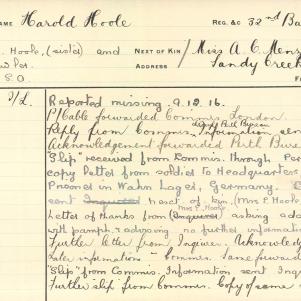 NAME Harold Hoole REG. & C 32nd Ba
Hoole, (sister) and NEXT OF KIN Miss A. C. Menz
ADDRESS Sandy Creek
S.O.
I/L. Reported missing. 9.12.16.
P/Cable forwarded Commis. London.
Reply from Commis. Information sen
Acknowledgement forwarded Perth Bure
"Slip" received from Commis. through Per
copy letter from soldier to Headquarters
Prisoner in Wahn Lager, Germany.
sent Inquirer next of kin. (Mrs P. Hoole
Letter of thanks from (Inquirer) asking adv
with pamph. & advising no further informati
Further letter from Inquirer. Acknowledg
later information - Commis. Same forward
"Slip" from Commis. Information sent Inqu
Further slip from Commis. Copy of same